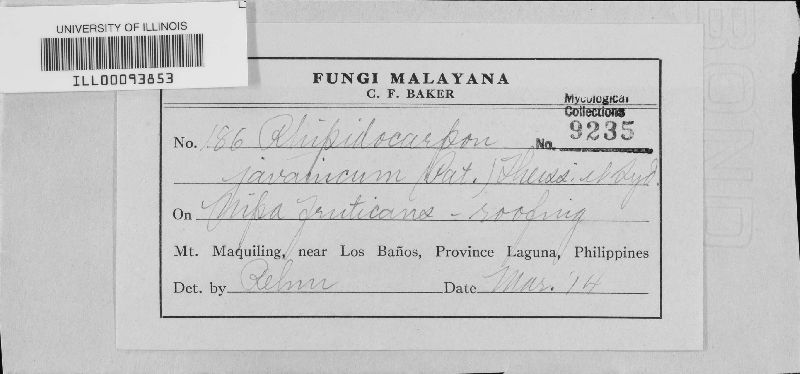 UNIVERSITY OF ILLINOIS
ILL00093853
FUNGI MALAYANA
C. F. BAKER
Mycological
Collections
No. 9235
No. 186 Rhipidocarpon
javanicum (Pat.) Theiss. et Syd.
On Nipa fruticans - roofing
Mt. Maquiling, near Los Baños, Province Laguna, Philippines
Det. by Rehm Date Mar. '14